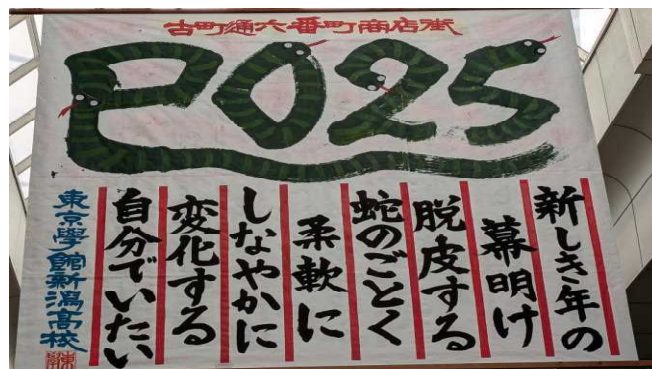 古町通六番町商店街
2025
新しき年の
幕明け
脱皮する
蛇のごとく
柔軟に
しなやかに
変化する
自分でいたい
東京學館新潟高校